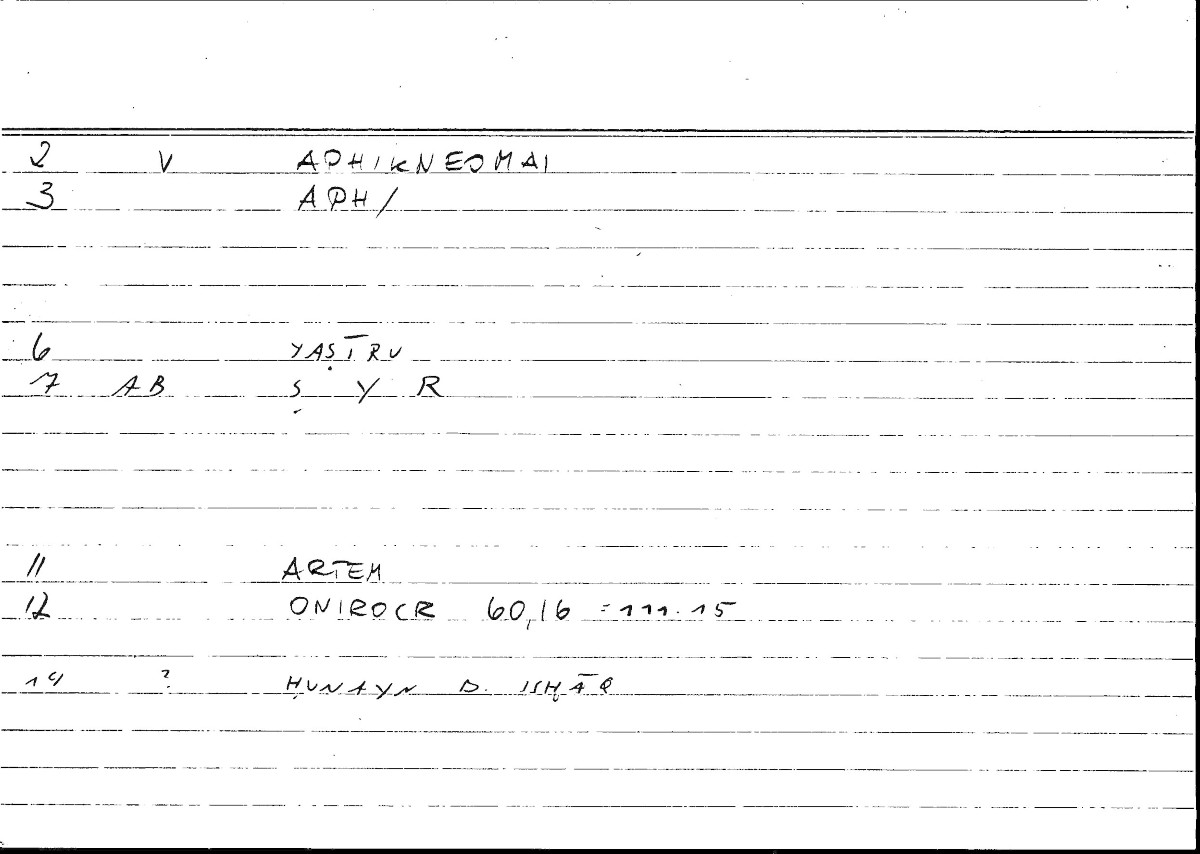 2 V APHIKNEOMAI
3 APH/
6 YAṢĪRU
7 AB Ṣ Y R
11 ARTEM
12 ONIROCR 60,16 = 111.15
14 ? ḤUNAYN B. ISḤĀQ